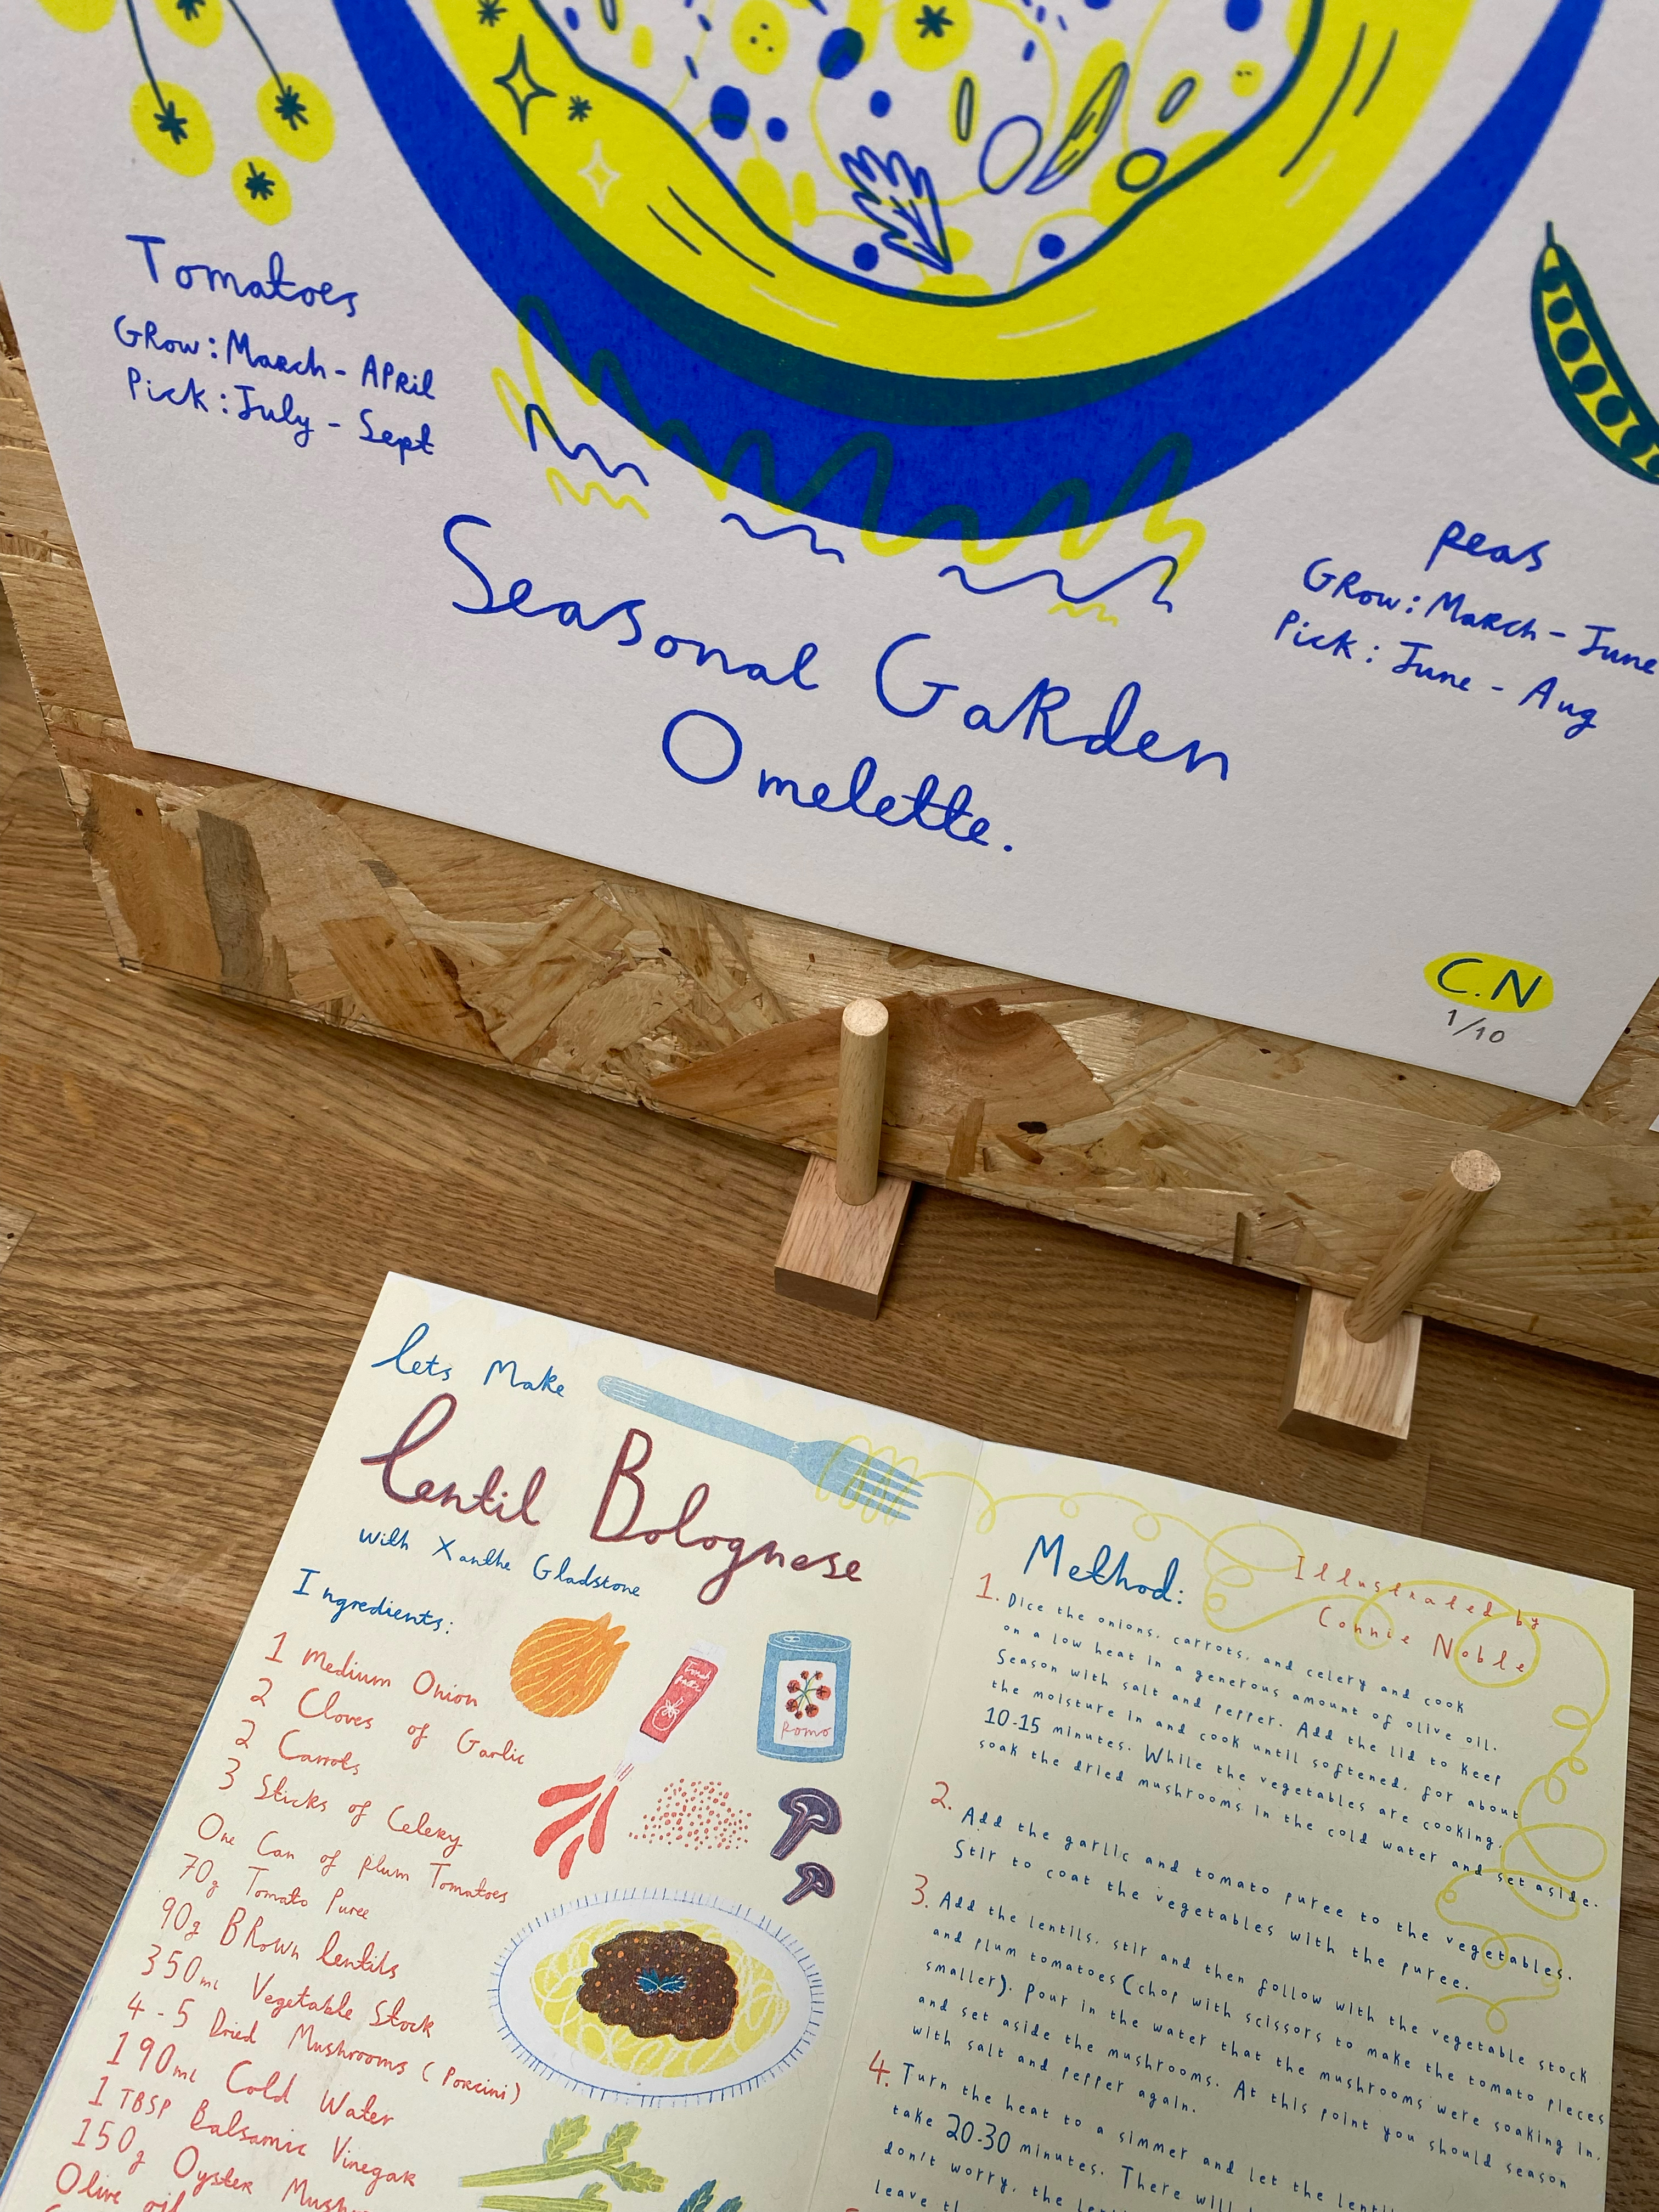 Tomatoes
Grow: March - April
Pick: July - Sept
peas
Grow: March - June
Pick: June - Aug
Seasonal Garden
Omelette.
C.N
1/10
lets Make
lentil Bolognese
with Xanthe Gladstone
Ingredients:
1 Medium Onion
2 Cloves of Garlic
2 Carrots
3 Sticks of Celery
One Can of plum Tomatoes
70g Tomato Puree
90g Brown lentils
350ml Vegetable Stock
4-5 Dried Mushrooms (Porcini)
190ml Cold Water
1 TBSP Balsamic Vinegar
150g Oyster
Olive oil
Tomato
Romo
Method:
Illustrated by
Connie Noble
1. Dice the onions, carrots, and celery and cook
on a low heat in a generous amount of olive oil.
Season with salt and pepper. Add the lid to keep
the moisture in and cook until softened, for about
10-15 minutes. While the vegetables are cooking,
soak the dried mushrooms in the cold water and set aside.
2. Add the garlic and tomato puree to the vegetables.
Stir to coat the vegetables with the puree.
3. Add the lentils, stir and then follow with the vegetable stock
and plum tomatoes (chop with scissors to make the tomato pieces
smaller). Pour in the water that the mushrooms were soaking in,
and set aside the mushrooms. At this point you should season
with salt and pepper again.
4. Turn the heat to a simmer and let the
take 20-30 minutes. There will
don't worry, the
leave